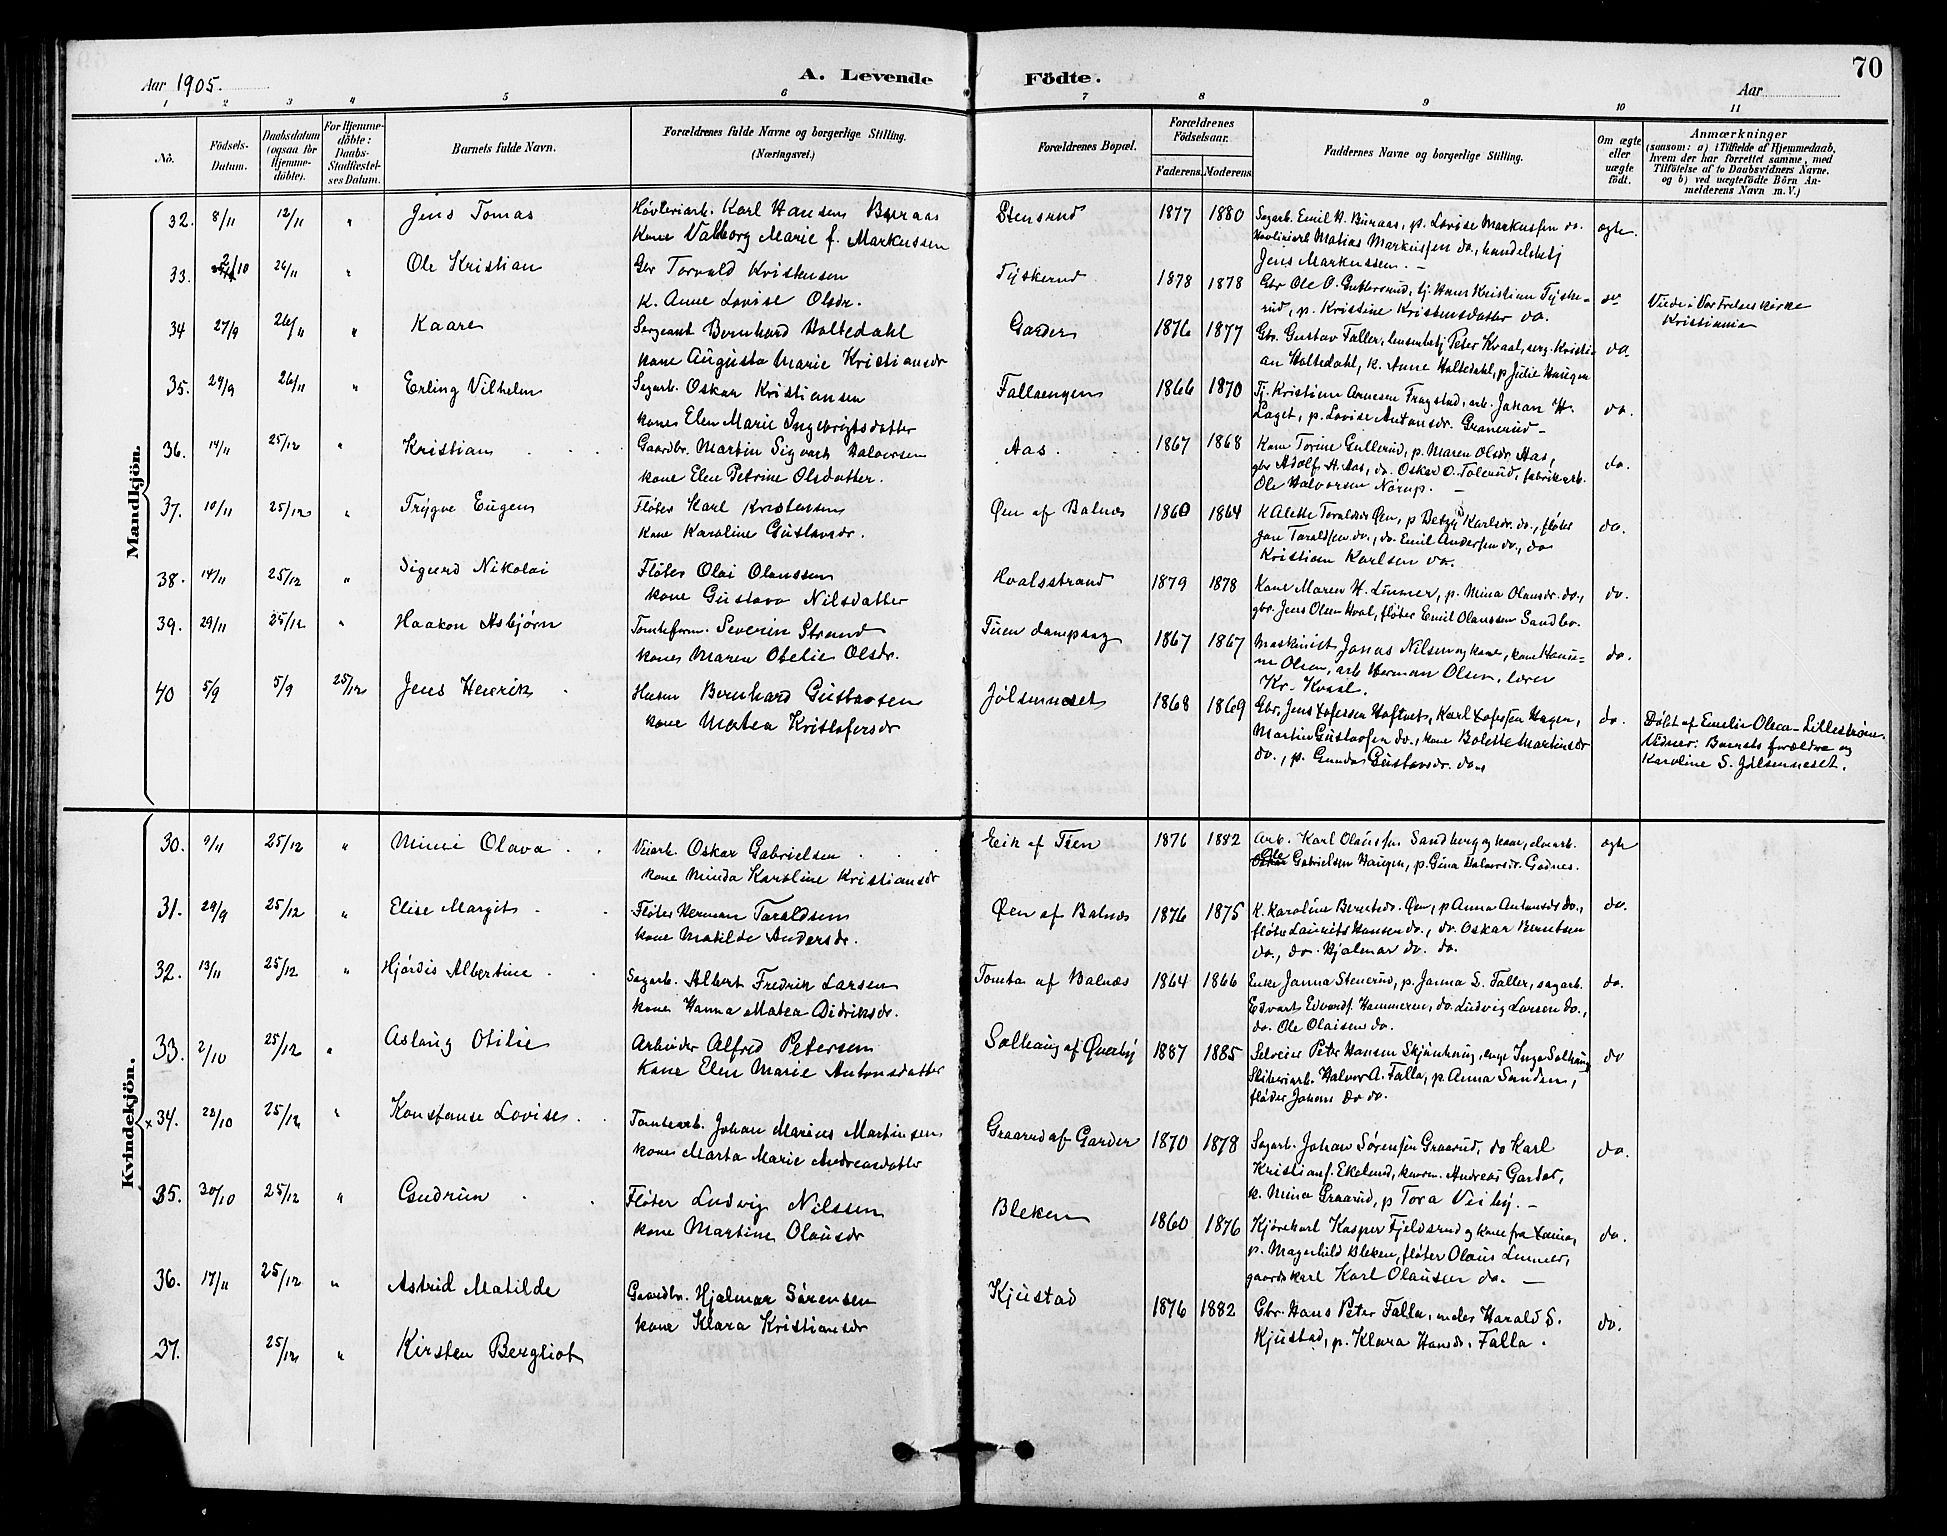 70
Aar 1905. A. Levende Födte. Aar
1 2 3 4 5 6 7 8 9 10 11
No. Födsels-Datum. Daabsdatum (ogsaa for Hjemme-döbte). For Hjemme-döbte: Daabs-Stadfæstel-ses Datum. Barnets fulde Navn. Forældrenes fulde Navne og borgerlige Stilling. (Næringsvei.) Forældrenes Bopæl. Forældrenes Födselsaar. Faderens. Moderens. Faddernes Navne og borgerlige Stilling. Om ægte eller uægte födt. Anmærkninger (saasom: a) i Tilfælde af Hjemmedaab, hvem der har forrettet samme, med Tilföielse af to Daabsvidners Navne, og b) ved uægtefödte Börn An-melderens Navn m. V.)
Mandkjön.
32. 8/11 12/11 " Jens Tomas Høvleriarb. Karl Hansen Buraas Stensrud 1877 1880 Sagarb. Emil H. Buraas, p. Lovise Markussen do. ægte.
Kone Valborg Marie f. Markussen Høvleriarb Matias Markussen do., handelsbetj
Jens Markussen. —
33. 2/10 26/11 " Ole Kristian Gbr Torvald Kristensen Tyskerud 1878 1878 Gbr Ole O. Guttersrud, tj. Hans Kristian Tyske= do Viede i Vor Frelsers kirke
K. Anne Lovise Olsdr. rud, p. Kristine Kristensdatter do. Kristiania
34 27/9 26/11 " Kaare Sergeant Bernhard Holtedahl Garder 1876 1877 Gbr. Gustav Faller, lensmbetj Peter Kvaal, serg. Kristi do.
kone Augusta Marie Kristiansdr an Holtedahl, k. Anne Holtedahl, p Julie Haugen
35. 24/9 26/11 " Erling Vilhelm Sagarb. Oskar Kristiansen Fallaengen 1866 1870 Tj. Kristian Arnesen Fragstad, arb. Johan H. do.
kone Elen Marie Ingebrigtsdatter Laget, p. Lovise Antonsdr. Granerud —
36. 14/11 25/12 " Kristian Gaardbr. Martin Sigvart Halvorsen Aas. 1867 1868 Kone Torine Gullerud, p. Maren Olsdr Aas, do.
kone Elen Petrine Olsdatter. gbr Adolf H. Aas, do. Oskar O. Tolerud, fabrikarb.
Ole Halvorsen Nørup. —
37. 10/11 25/12 " Trygve Eugen Fløter Karl Kristensen Øen af Balnæs 1860 1864 K Alette Taraldsen Øen, p Betzy Karlsdr. do., fløter do.
Kone Karoline Gustavsdr. Jan Taraldsen do., do. Emil Andersen do., do
Kristian Karlsen do.
38. 14/11 25/12 " Sigurd Nikolai Fløter Olai Olaussen Hvalsstrand 1879 1878 Kone Maren H. Linner, p. Mina Olausdr. do., do.
kone Gustava Nilsdatter gbr. Jens Olsen Hval, fløter Emil Olaussen Sandbr.
39. 29/11 25/12 " Haakon Asbjørn Tomteform. Severin Strand Tien dampsag 1867 1867 Maskinist Jonas Nilsen og kone, kone Hann= do.
kone Maren Otelie Olsdr. ne Olsen, arb Herman Olsen, lærer
Kr. Kvaal.
40 5/9 5/9 25/12 Jens Henrik Husm Bernhard Gustavsen Jølsenneset 1868 1869 Gbr. Jens Tofessen Hoftvet, Karl Tofessen Hagen, do. Døbt af Emelie Olsen-Lillestrøm.
kone Matea Kristofersdr Martin Gustavsen do., kone Bolette Martinsdr Vidner: Barnets forældre og
do., p. Gunda Gustavsdr. do. Karoline S. Jølsenneset.
Kvindekjön.
30. 9/11 25/12 " Minni Olava Veiarb. Oskar Gabrielsen Eik af Tien 1876 1882 Arb. Karl Olaussen Sandberg og kone, elvearb. ægte
kone Minda Karoline Kristiansdr Ole Gabrielsen Haugen, p. Gina Halvorsdr. Godnes.
31. 29/9 25/12 " Elise Margit Fløter Herman Taraldsen Øen af Balnæs 1876 1875 K. Karoline Berntsdr. Øen, p Anna Antonsdr do., do.
kone Matilde Andersdr. fløter Laurits Hansen do., do. Oskar Berntsen
do., do. Hjalmar do. do.
32. 13/11 25/12 " Hjørdis Albertine Sagarb. Albert Fredrik Larsen Tomta af Balnæs 1864 1866 Enke Janna Stenerud, p. Janna S. Faller, sagarb. do.
kone Hanna Matea Didriksdr. Edvart Edvards. Hammeren, do. Ludvig Larsen do.,
do. Ole Olaisen do.
33. 2/10 25/12 " Aslaug Otilie Arbeider Alfred Petersen Solhaug af Øverby 1887 1885 Selveier Peter Hansen Skjønhaug, enge Inga Solhaug do
Kone Elen Marie Antonsdatter Sliberiarb. Halvor A. Falla, p Anna Sanden,
fløder Johan do do.
x 34. 28/10 25/12 " Konstanse Lovise Tomtearb. Johan Marius Martinsen Graarud af Garder 1870 1878 Sagarb. Johan Sørensen Graarud, do Karl do.
kone Marta Marie Andreasdatter Kristians. Ekelund, Andreas Garder,
k. Mina Graarud, p Tora Veiby. —
35. 30/10 25/12 " Gudrun Fløter Ludvig Nilssen Bleken 1860 1876 Kjørekarl Kasper Fjeldsrud og kone fra do.
kone Martine Olausdr p. Magnhild Bleken, fløter Olaus Linner,
gaardskarl Karl Olausen do. —
36. 17/11 25/12 " Astrid Matilde Gaardbr. Hjalmar Sørensen Kjustad 1876 1882 Gbr. Hans Peter Falla, Harald S. do.
kone Klara Kristiansdr Kjustad, p. Klara Hansdr. Falla.
37. 25/12 " Kirsten Bergliot